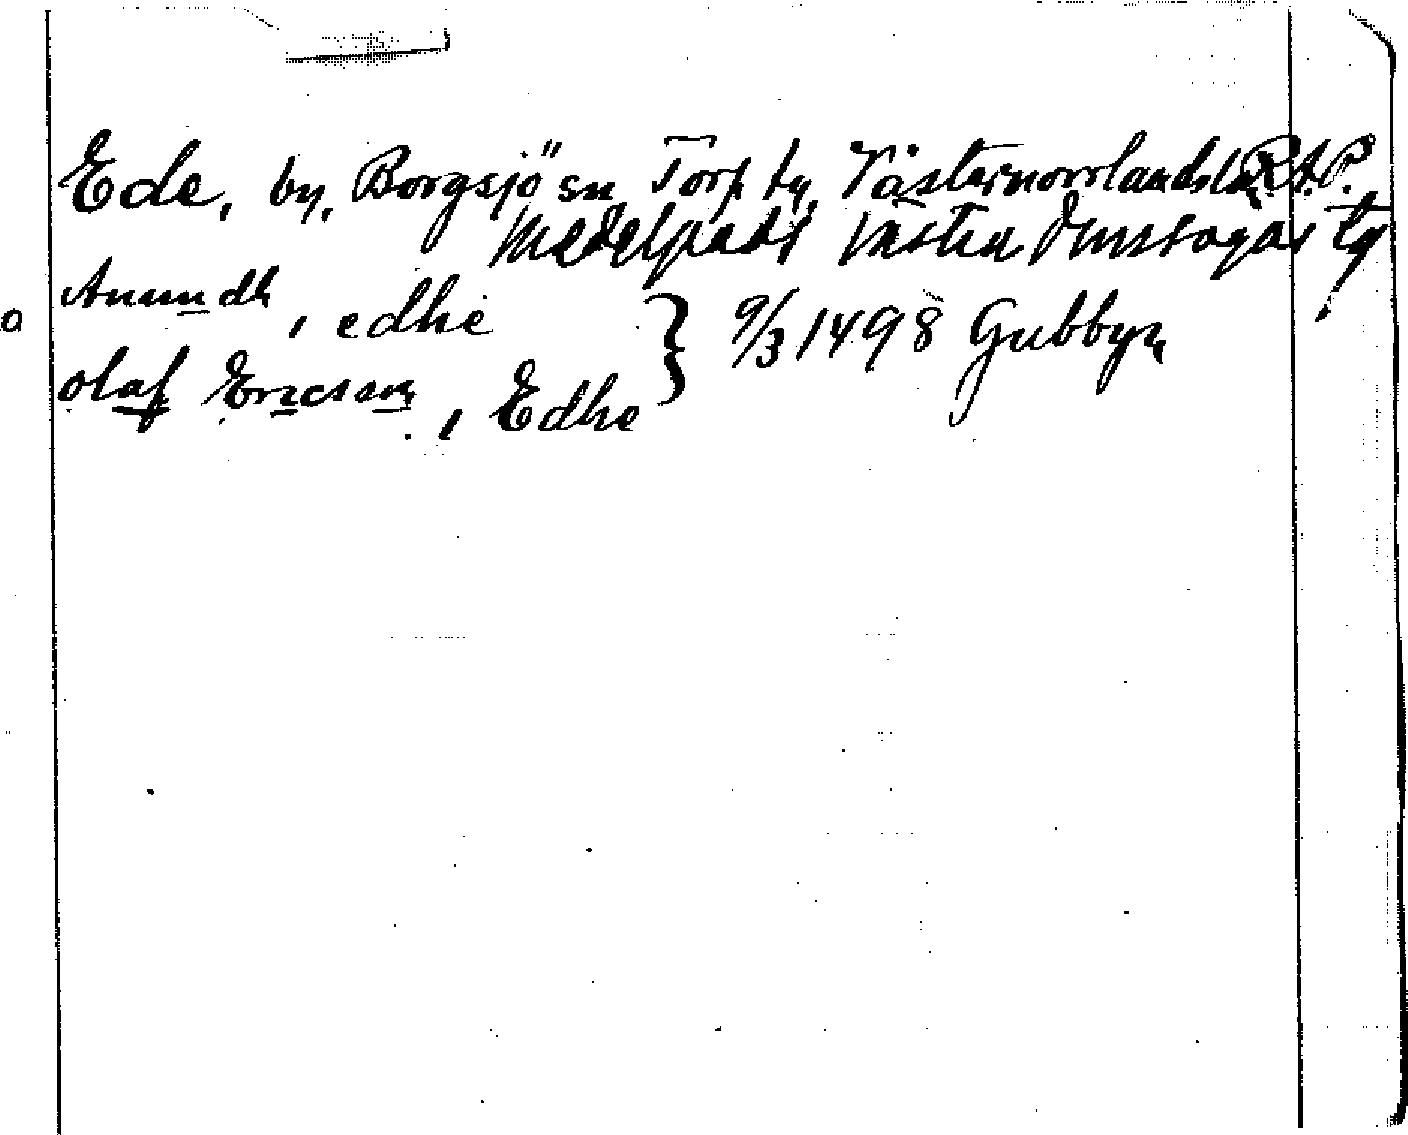 Ede, by, Borgsjö sn, Torp tg, Västernorrlands län R.A.P.
Medelpads västra domsagas tg
Anundh, i edhe
Olaf Ericson, i Edhe } 9/3 1498 Gubbyn